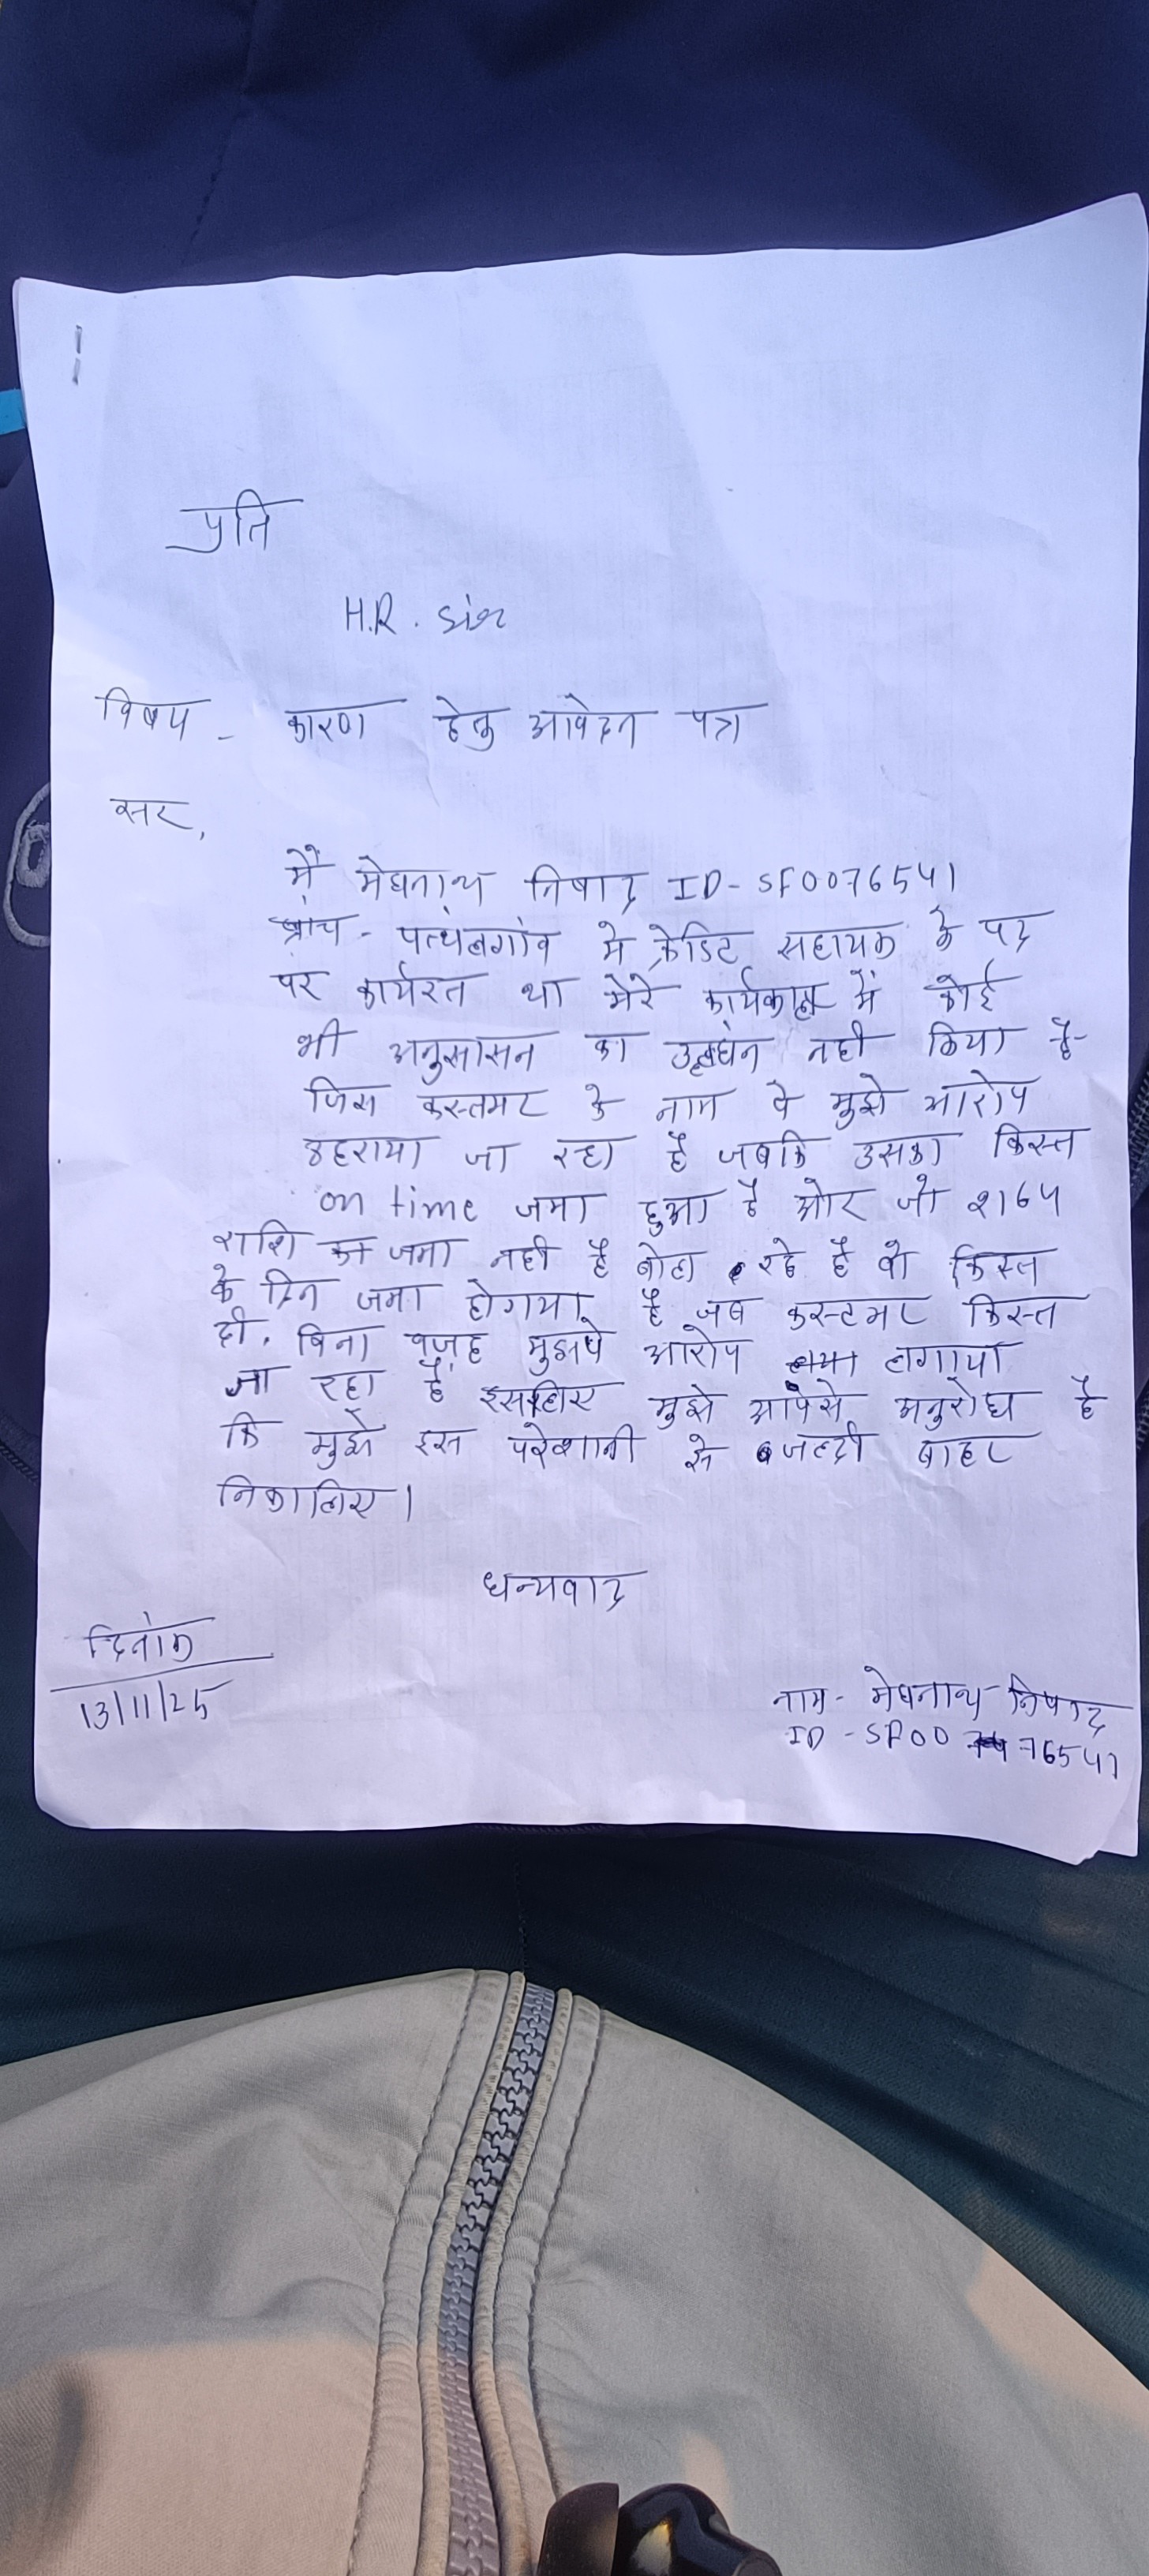 प्रति
H.R. सर
विषय - कारण हेतु आवेदन पत्र
सर,
मैं मेघनाथ निषाद ID-SF0076541
ब्रांच - पत्थंलगांव मे क्रेडिट सहायक के पद
पर कार्यरत था मेरे कार्यकाल में कोई
भी अनुसासन का उल्लघंन नही किया है
जिस कस्तमर के नाम पे मुझे आरोप
ठहराया जा रहा है जबकि उसका किस्त
on time जमा हुआ है और जो 2164
राशि का जमा नही है बोल रहे है वो किस्त
के दिन जमा होगया है जब कस्टमर किस्त
दी, बिना वजह मुझपे आरोप लगाया
जा रहा है इसलिए मुझे आपसे अनुरोध है
कि मुझे इस परेशानी से जल्दी बाहर
निकालिए।
धन्यवाद
दिनांक
13/11/25
नाम - मेघनाथ निषाद
ID - SF00 76541